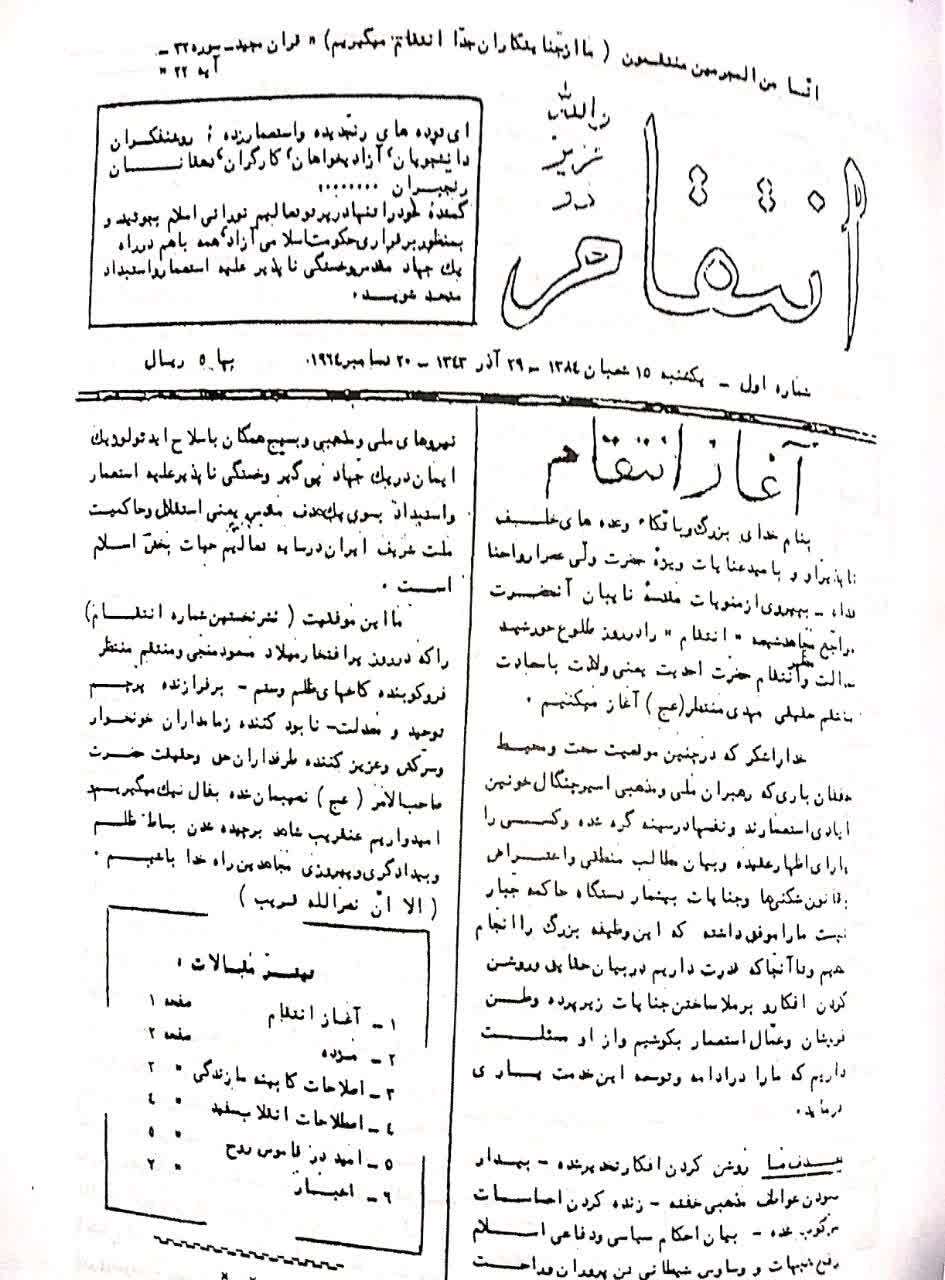 انا من المجرمین منتقمون ( ما از جنایتکاران جدّا انتقام میگیریم) " قران مجید ـ سوره ۳۲ ـ
آیه ۲۲ "
انتقام
ای توده های رنجدیده و استعمارزده ؛ روشنفکران
دانشجویان٬ آزادیخواهان٬ کارگران٬ دهقانان
رنجبران ........
گمشدهٔ خود را تنها در پرتو تعالیم نورانی اسلام بجوئید و
بمنظور برقراری حکومت اسلامی آزاد٬ همه باهم در راه
یك جهاد مقدس و خستگی ناپذیر علیه استعمار و استبداد
متحد شوید .
شماره اول ـ یکشنبه ۱۵ شعبان ۱۳۸۴ ـ ۲۹ آذر ۱۳۴۳ ـ ۲۰ دسامبر ۱۹۶۴.
بها ۵ ریال
آغاز انتقام
بنام خدای بزرگ و با اتکاء وعده های خلف
ناپذیر او و با امید عنایات ویژهٔ حضرت ولی عصر ارواحنا
فداه ـ بپیروی از منویات مقدسهٔ نایبان آنحضرت
مراجع مجاهد شیعه " انتقام " را در روز طلوع خورشید
عدالت و مظهر انتقام حضرت احدیت یعنی ولادت با سعادت
منتقم حقیقی مهدی منتظر (عج) آغاز میکنیم .
خدا را شکر که در چنین موقعیت سخت و محیط
خفقان باری که رهبران ملی و مذهبی اسیر چنگال خونین
ایادی استعمارند و نفسها در سینه گره شده و کسی را
یارای اظهار عقیده و بیان مطالب منطقی و اعتراض
بقانون شکنی‌ها و جنایات بیشمار دستگاه حاکمه جبار
نیست ما را موفق داشته که این وظیفه بزرگ را انجام
دهیم و تا آنجا که قدرت داریم در بیان حقایق و روشن
کردن افکار و برملا ساختن جنایات زیر پرده وطن
فروشان و عمّال استعمار بکوشیم و از او مسئلت
داریم که ما را در ادامه و توسعه این خدمت یاری
فرماید.
هدف ما روشن کردن افکار تخدیر شده ـ بیدار
نمودن عواطف مذهبی خفته ـ زنده کردن احساسات
سرکوب شده ـ بیان احکام سیاسی و دفاعی اسلام
رفع شبهات و وساوس شیطانی تن پروران و راحت
نیروهای ملی و مذهبی و بسیج همگان با سلاح ایدئولوژیك
ایمان در یك جهاد پی گیر و خستگی ناپذیر علیه استعمار
و استبداد بسوی یك هدف مقدس یعنی استقلال و حاکمیت
ملت شریف ایران در سایه تعالیم حیات بخش اسلام
است .
ما این موفقیت ( نشر نخستین شماره انتقام)
را که در روز پر افتخار میلاد مسعود منجی و منتقم منتظر
فروکوبنده کاخهای ظلم و ستم ـ برفرازنده پرچم
توحید و معدلت ـ نابود کننده زمامداران خونخوار
و سرکش و عزیز کننده طرفداران حق و حقیقت حضرت
صاحب الامر ( عج ) نصیبمان شده بفال نیك میگیریم و
امیدواریم عنقریب شاهد برچیده شدن بساط ظلم
و بیدادگری و پیروزی مجاهدین راه خدا باشیم .
( الا انّ نصرالله قریب )
فهرست مقالات :
۱ ـ آغاز انتقام صفحه ۱
۲ ـ مژده صفحه ۲
۳ ـ اصلاحات کابینه سازندگی " ۲
۴ ـ اصطلاحات انقلاب سفید " ۴
۵ ـ امید در قاموس روح " ۵
۶ ـ اخبار " ۲